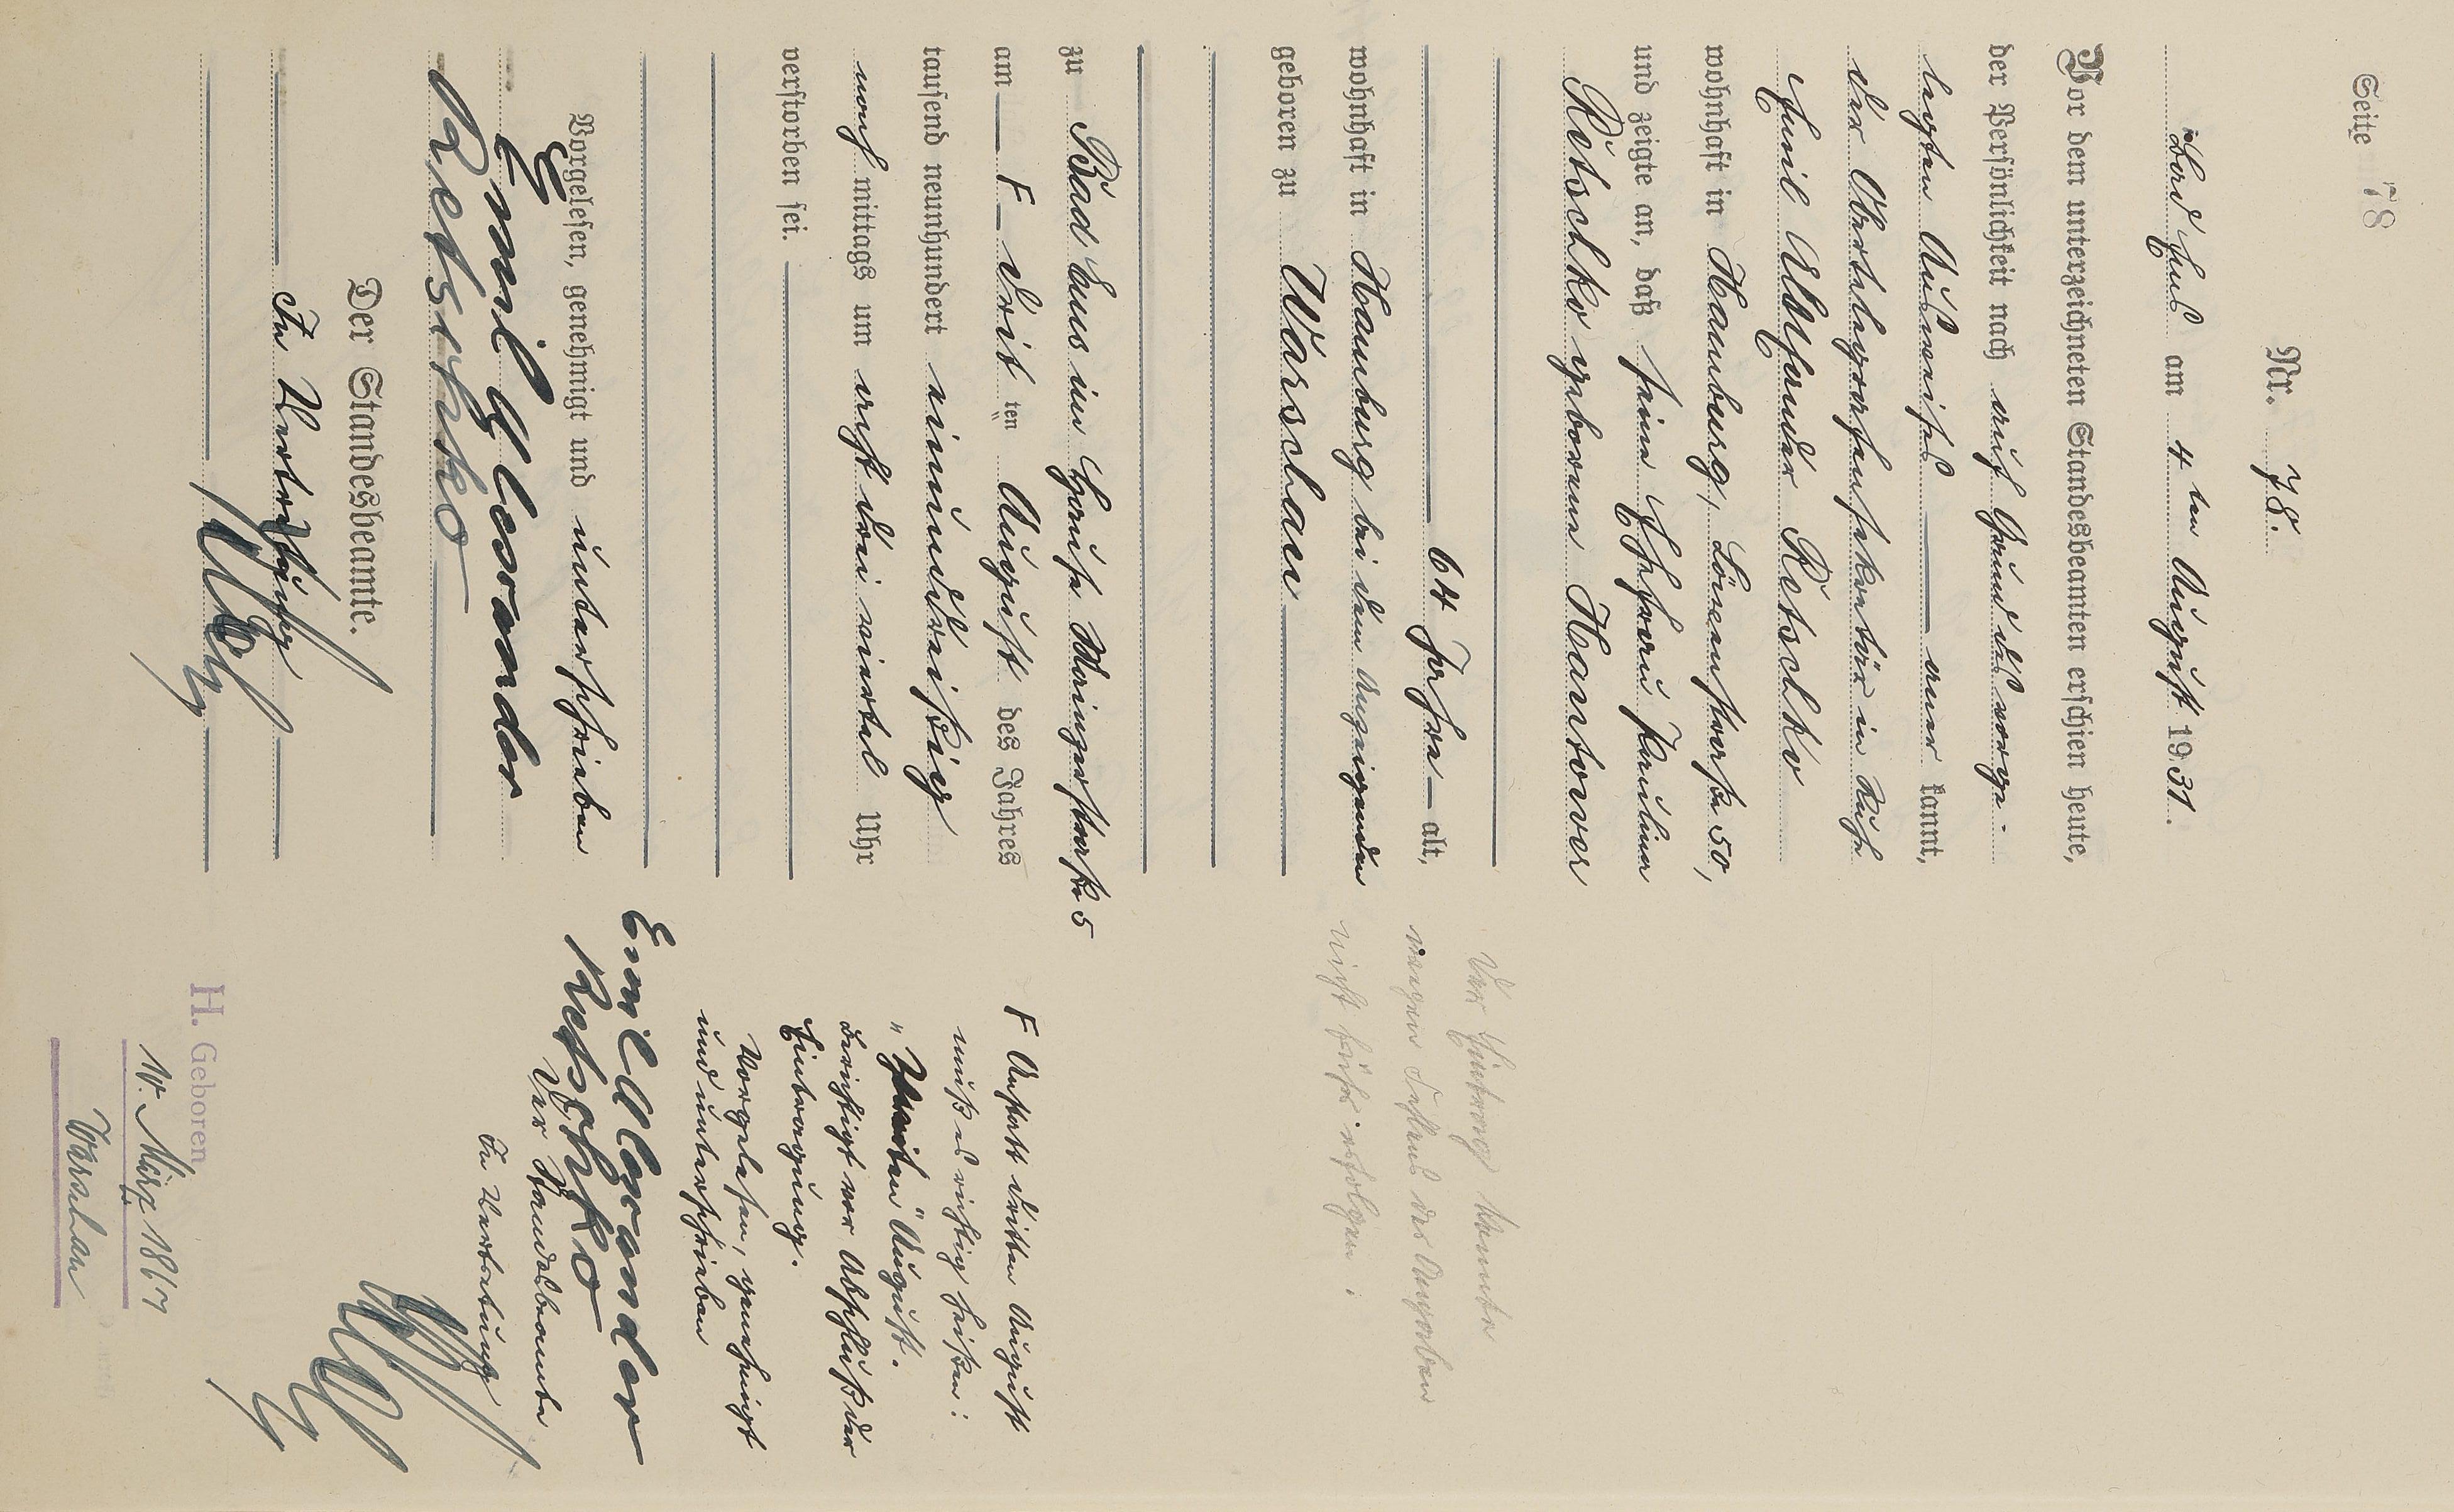 Seite 78
Nr. 78.
Bad Ems am 4 ten August 1931.
Vor dem unterzeichneten Standesbeamten erschien heute,
der Persönlichkeit nach auf Grund des vorge-
legten Ausweises aner kannt,
der Obertelegrafensekretär in Ruhe
Emil Alexander Retschko
wohnhaft in Hamburg, 50,
und zeigte an, daß seine Ehefrau Pauline
Retschko geborene Hantower
64 Jahre alt,
wohnhaft in Hamburg bei dem Anzeigenden
geboren zu Warschau
zu Bad Ems im Hause Mainzerstraße 5
am F drit ten August des Jahres
tausend neunhundert einunddreißig
nach mittags um acht drei viertel Uhr
verstorben sei.
Vorgelesen, genehmigt und unterschrieben
Emil Alexander
Retschko
Der Standesbeamte.
In Vertretung
Der Eintrag konnte
wegen Fehlens der Angaben
nicht früher erfolgen.
F Anstatt dritten August
muß es richtig heißen:
„Zweiten" August.
Berichtigt vor Abschluß der
Eintragung.
Vorgelesen, genehmigt
und unterschrieben
Emil Alexander
Retschko
Der Standesbeamte
In Vertretung
H. Geboren
10. März 1867
Warschau